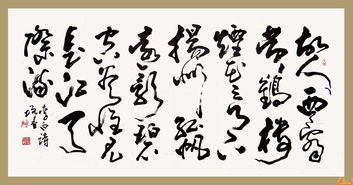 故人西辭
黄鶴樓
煙花三月下
揚州孤帆
遠影碧
空盡惟見
長江天
際流
李白詩